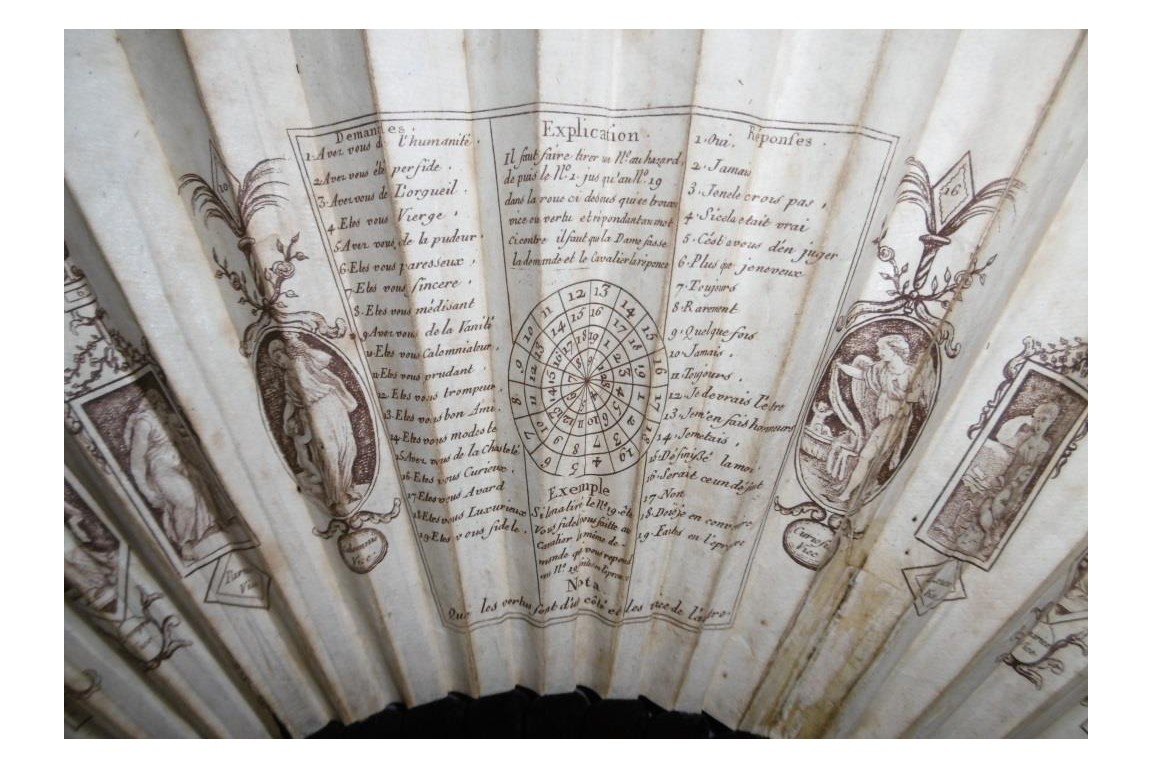 Demandes.
1. Avez vous de l'humanité.
2. Avez vous été perfide.
3. Avez vous de L'orgueil.
4. Etes vous Vierge.
5. Avez vous de la pudeur.
6. Etes vous paresseux,
7. Etes vous sincere.
8. Etes vous médisant
9. Avez vous de la Vanité
Etes vous Calomniateur,
Etes vous prudant.
12. Etes vous trompeur.
13. Etes vous bon Ami.
14. Etes vous modeste
15. Avez vous de la Chasteté
16. Etes vous Curieux.
17. Etes vous Avard
18. Etes vous Luxurieux
19. Etes vous fidele.
Explication
Il faut faire tirer un No. au hazard,
depuis le No. 1. jus qu'au No. 19
dans la roue ci desus qui ce trouve
vice ou vertu et répondant au mot
ci contre il faut que la Dame fasse
la demande et le Cavalier la réponce
12 13 14 15 16 17 18 19 4 5 6 7 8 9 10 11
Exemple
Si l'on a tiré le No. 19. ête
Vous fidel vous faitte au
Cavalier la même de-
mande qui vous repons
au No. 19
Nota
Que les vertus sont d'un côté et les vice de l'autre
Réponses.
1. Oui.
2. Jamais
3. Je ne le crois pas,
4. Si cela etait vrai
5. C'ést a vous d'én juger
6. Plus que je ne veux
7. Toujours
8. Rarement
9. Quelque fois
10. Jamais,
11. Toujours,
12. Je devrais L'etre
13. J'en'en fais honneurs
14. Je m'etais,
15. Définissé la moi
16. Serait ce un défaut
17. Non
18. Dois je en convenire,
19. Faites en l'epreuve
10
16
Vice
Vice
Vice